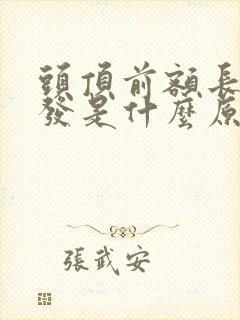 頭頂前額長
發是什麼原
張武安